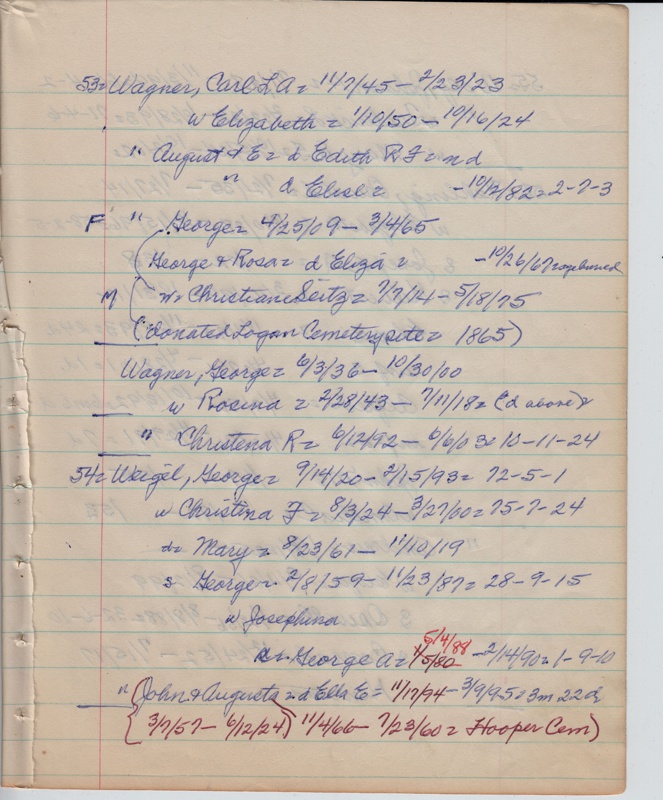 53= Wagner, Carl L.A = 11/7/45 - 2/23/23
w Elizabeth = 1/10/50 - 10/16/24
" August & E = d Edith R F = n d
" d Elise = - 10/12/82 = 2-7-3
F " George = 4/25/09 - 3/4/65
George & Rosa = d Eliza = - 10/26/67
M w = Christiane Seitz = 7/7/14 - 5/18/75
(donated Logan Cemetery site = 1865)
Wagner, George = 6/3/36 - 10/30/00
w Rosina = 2/28/43 - 7/11/18 = (d above)
" Christena R = 6/12/92 - 6/6/03 = 10-11-24
54= Weigel, George = 9/14/20 - 2/15/93 = 72-5-1
w Christina F = 8/3/24 - 3/27/00 = 75-7-24
d = Mary = 8/23/61 - 11/10/19
s George = 2/8/59 - 11/23/87 = 28-9-15
w Josephina
5/4/88
George A = 11/5/80 - 2/14/90 = 1-9-10
" (John & Augusta = d Ella E = 11/17/94 - 3/9/95 = 3m 22d
{ 3/7/57 - 6/12/24) 11/4/66 - 7/23/60 = Hooper Cem)